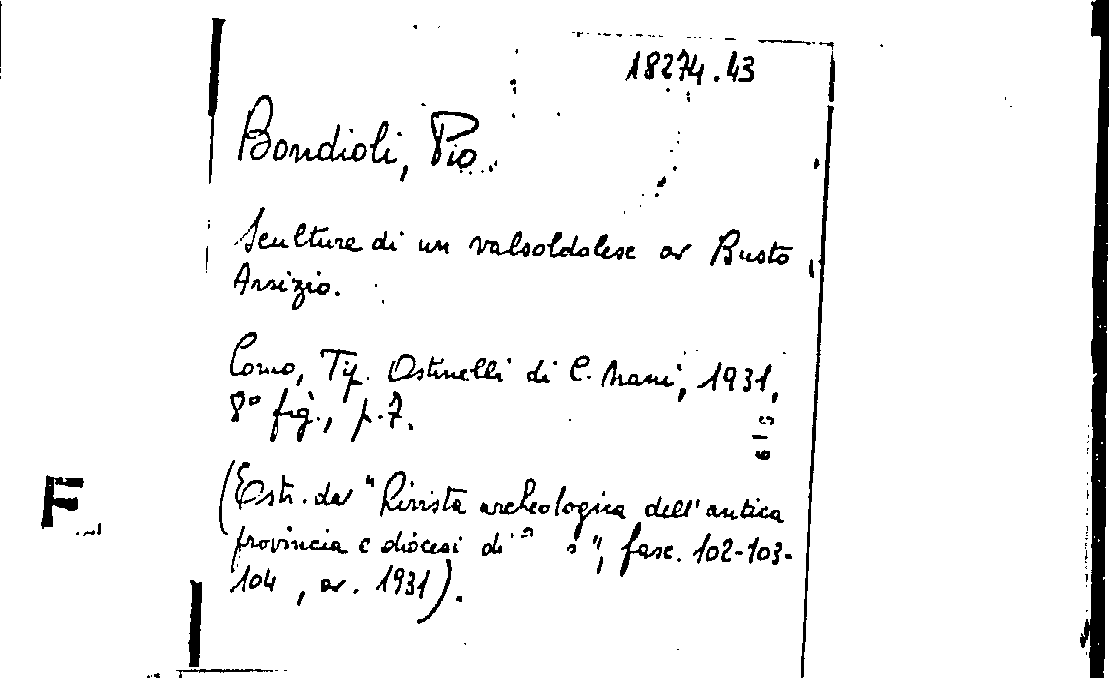 18274.43
Bondioli, Pio.
Sculture di un valsoldese a Busto
Arsizio.
Como, Tip. Ostinelli di C. Nani, 1931,
8° fig., p. 7.
(Estr. da "Rivista archeologica dell'antica
provincia e diocesi di ", fasc. 102-103-
104, a. 1931).
F